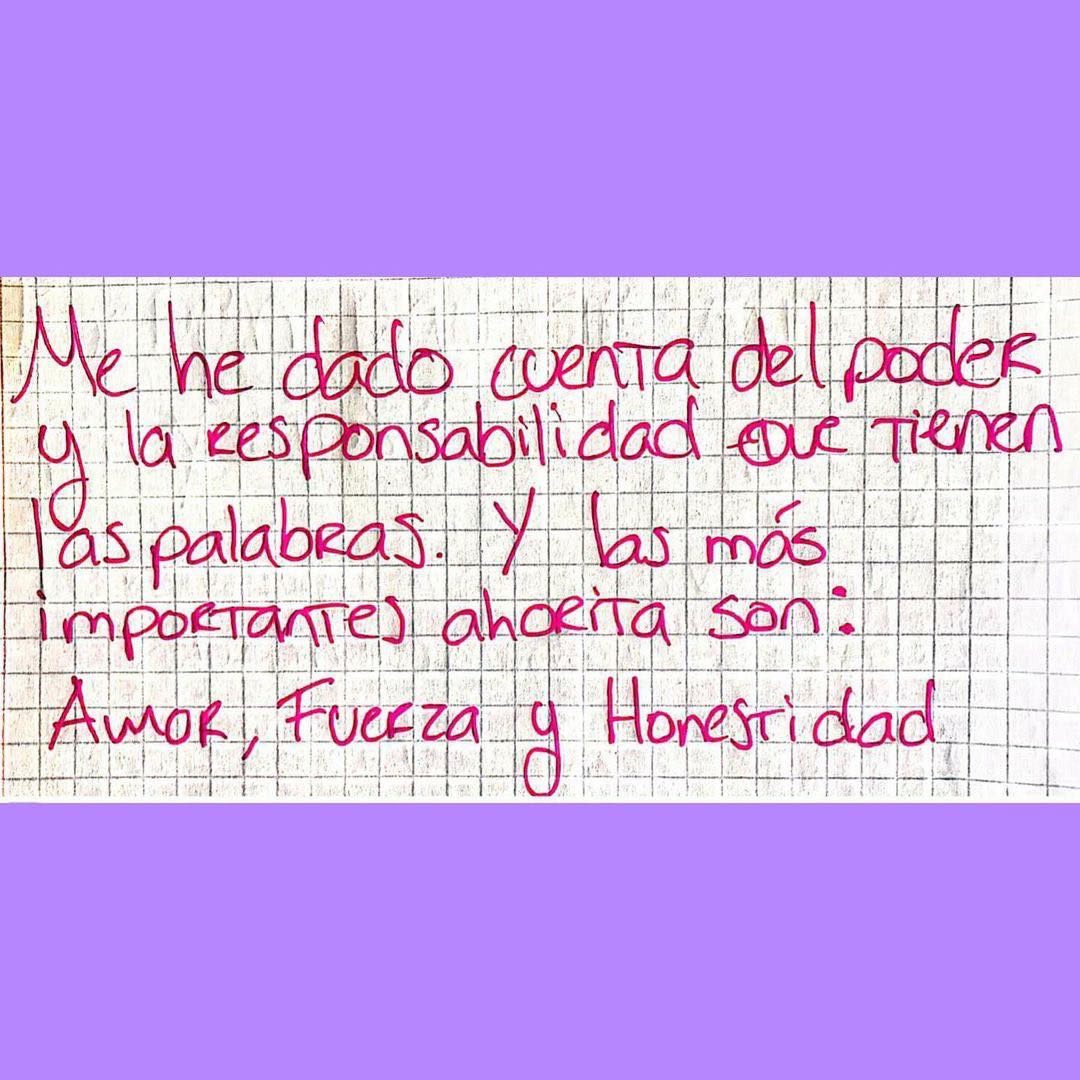 Me he dado cuenta del poder
y la responsabilidad que tienen
las palabras. Y las más
importantes ahorita son:
Amor, Fuerza y Honestidad